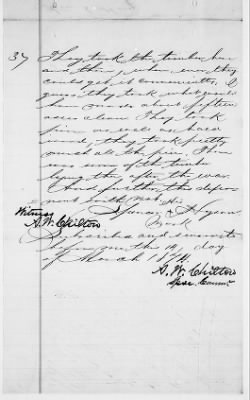 37 They took the timber here
and there, where ever they
could get it convenient, I
guess they took what would
have made about fifteen
acres clean They took
pine as well as hard
wood, they took pretty
much all the pine. There
was some of the timber
lying there after the war.
And further this depo-
nent saith not.
his
Spencer X Hyson
mark
Witness
A. W. Chilton
Subscribed and sworn to
before me this 19 day
of March 1874
A. W. Chilton
Spec. Comm<sup>r</sup>